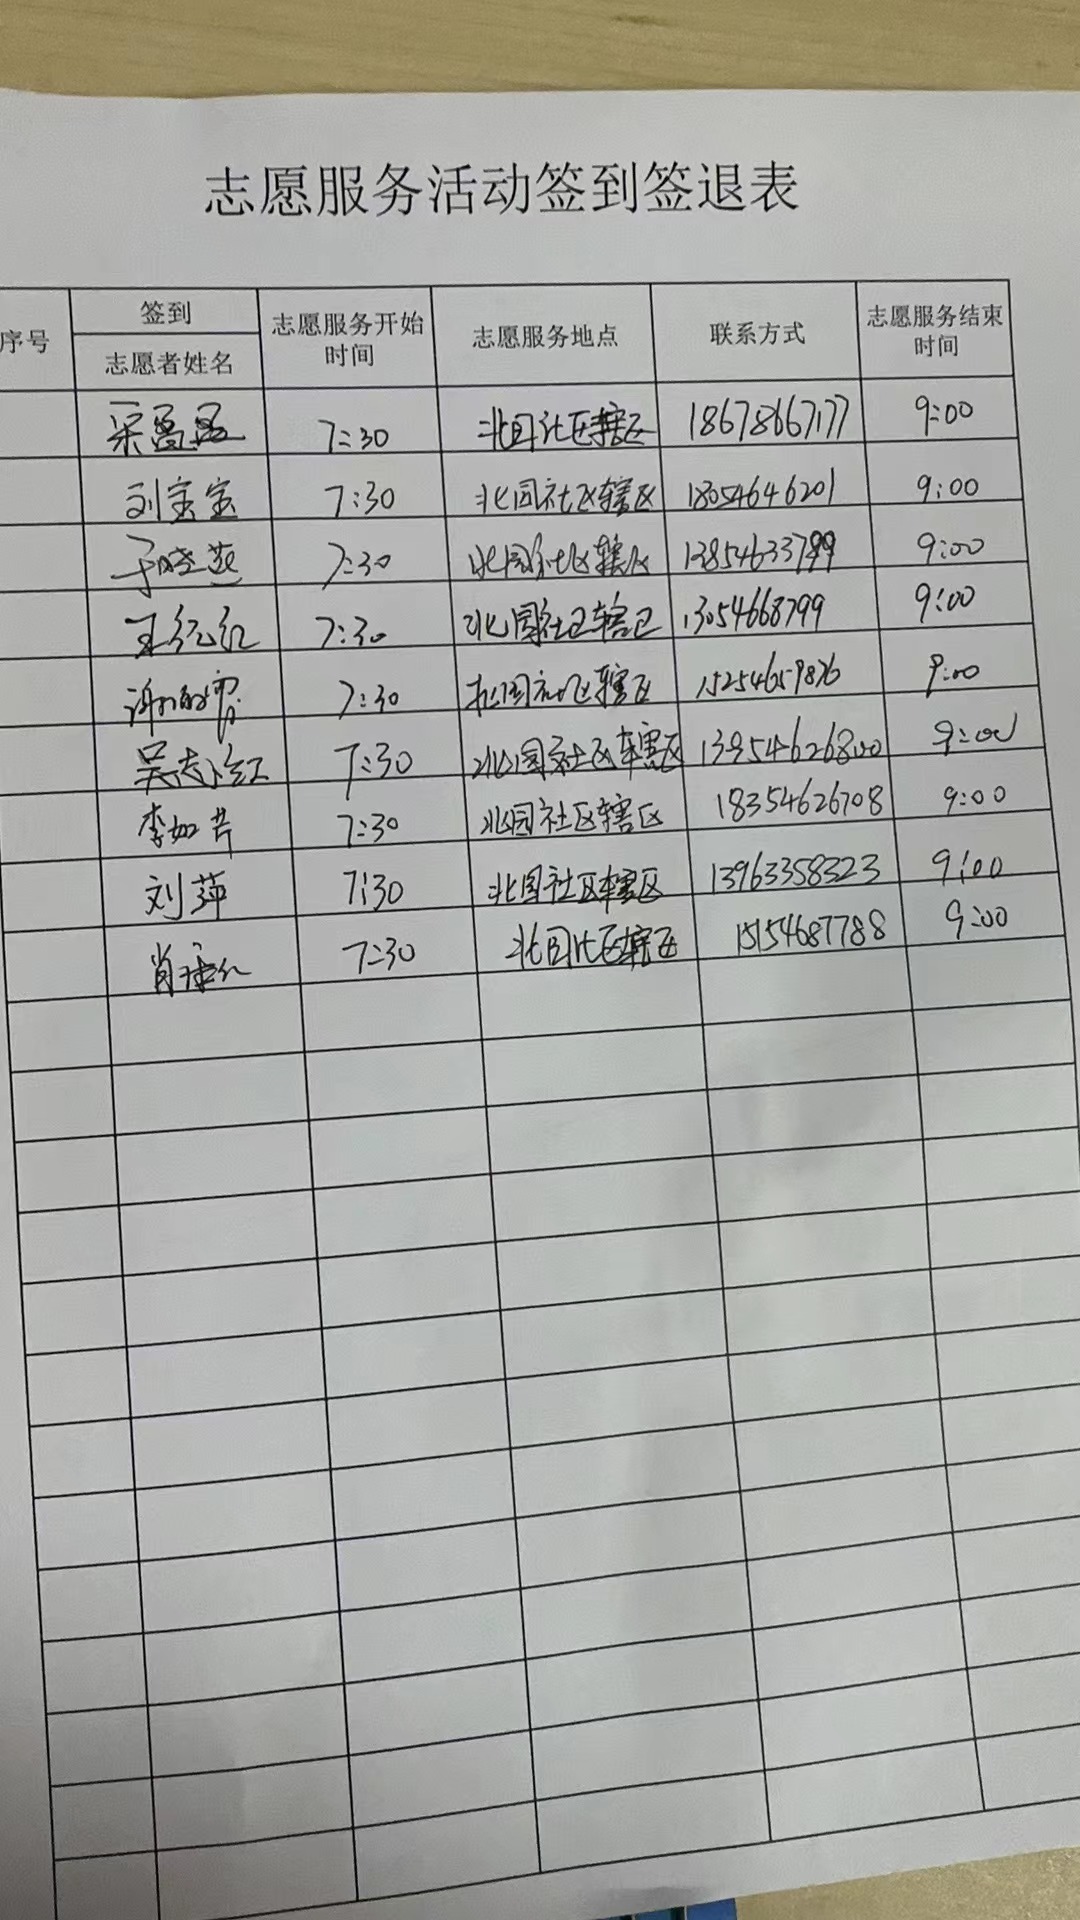 志愿服务活动签到签退表
序号 签到 志愿者姓名 志愿服务开始时间 志愿服务地点 联系方式 志愿服务结束时间
7:30 北园社区辖区 18678667177 9:00
刘宝宝 7:30 北园社区辖区 18054646201 9:00
于晓燕 7:30 北园社区辖区 13854633799 9:00
王红红 7:30 北园社区辖区 13054668799 9:00
7:30 北园社区辖区 15254659876 9:00
吴志红 7:30 北园社区辖区 13954626800 9:00
李如芹 7:30 北园社区辖区 18354626708 9:00
刘萍 7:30 北园社区辖区 13963358323 9:00
肖 7:30 北园社区辖区 15154687788 9:00